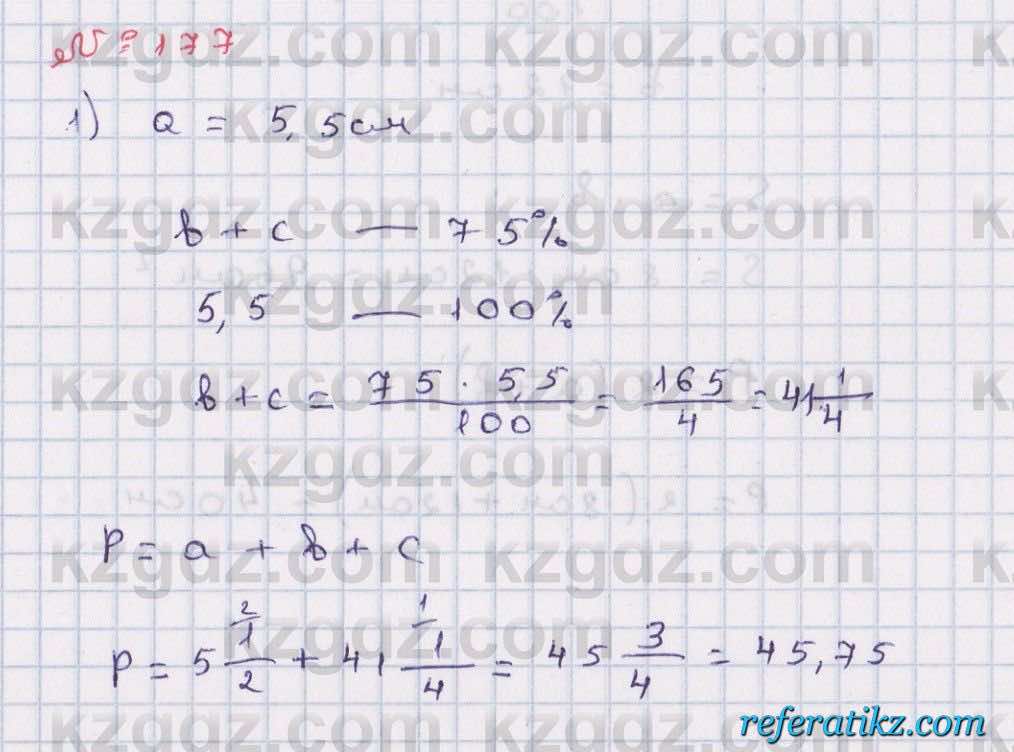 № 177
1) a = 5,5см
b + c — 75%
5,5 — 100%
b + c = 75 · 5,5 / 100 = 165/4 = 41 1/4
P = a + b + c
P = 5 1/2 + 41 1/4 = 45 3/4 = 45,75
kzgdz.com
referatikz.com